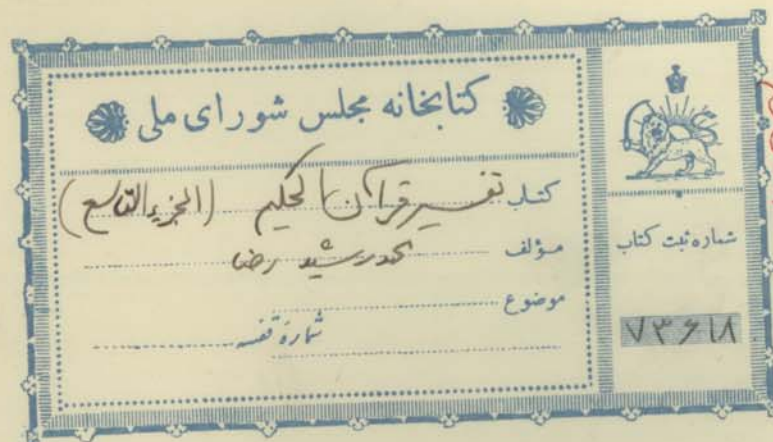 کتابخانه مجلس شورای ملی
کتاب تفسیر قرآن الحکیم (الجزء التاسع)
مؤلف محمد رشید رضا
موضوع
شمارهٔ قفسه
شماره ثبت کتاب
۷۳۶۱۸